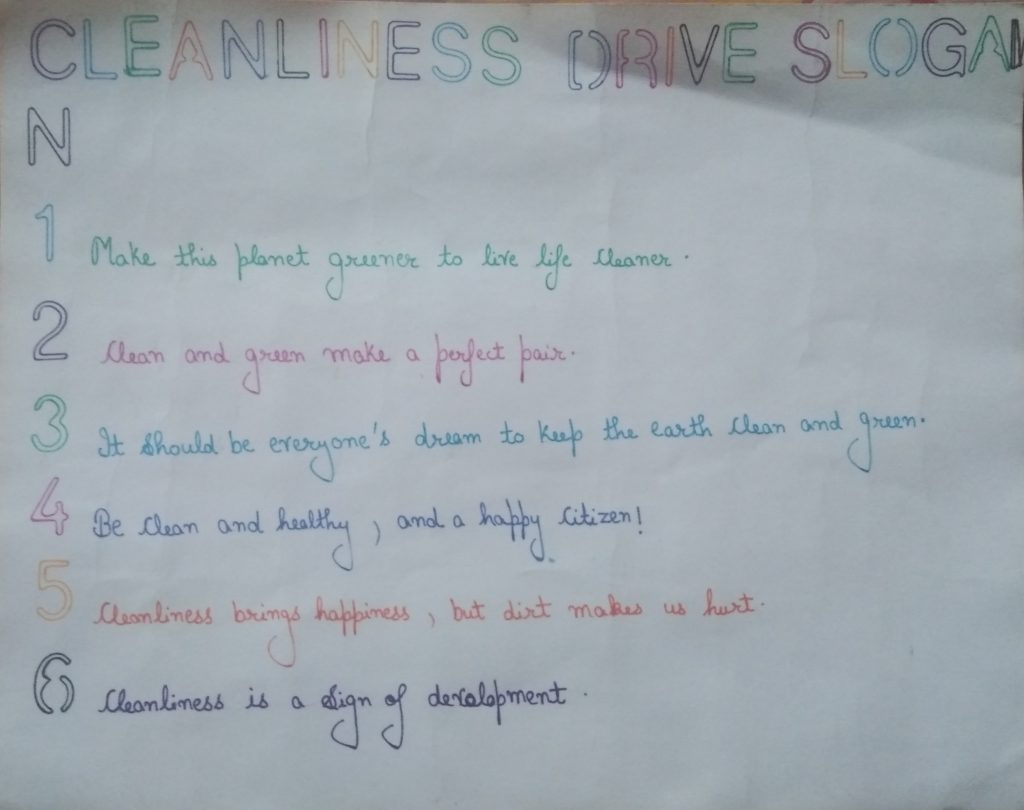 CLEANLINESS DRIVE SLOGAN
N
1 Make this planet greener to live life cleaner.
2 Clean and green make a perfect pair.
3 It should be everyone's dream to keep the earth clean and green.
4 Be clean and healthy, and a happy citizen!
5 Cleanliness brings happiness, but dirt makes us hurt.
6 Cleanliness is a sign of development.